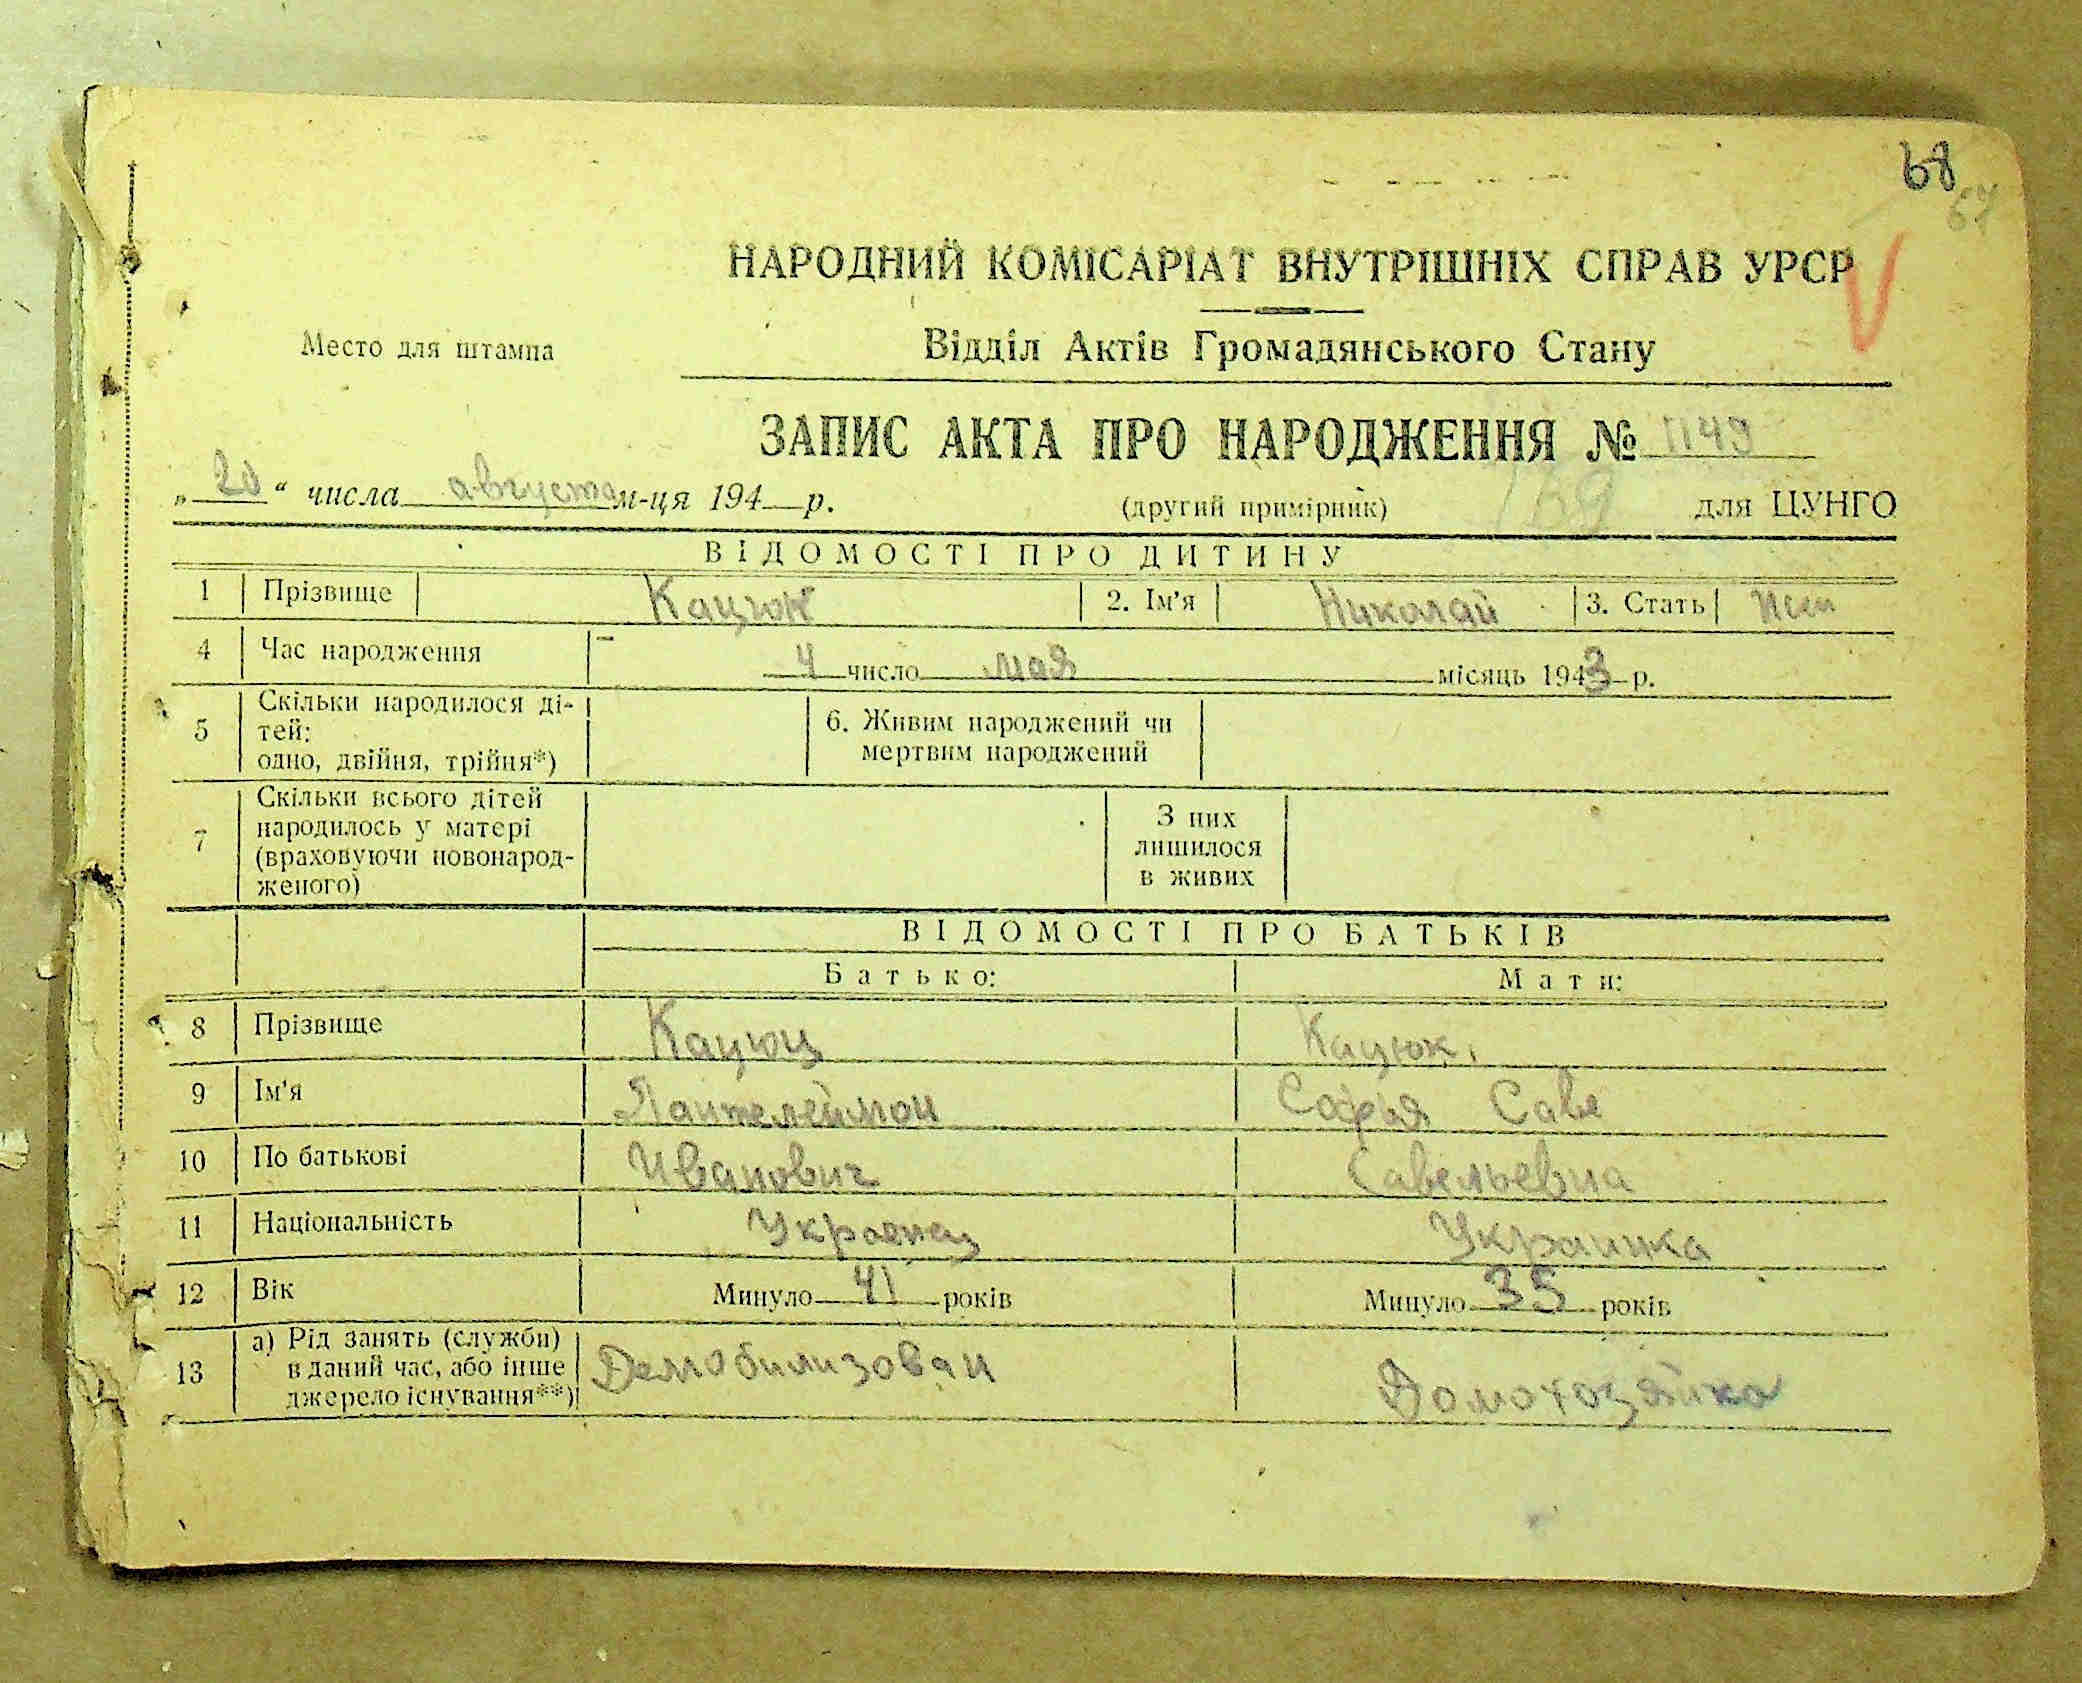 68
67
НАРОДНИЙ КОМІСАРІАТ ВНУТРІШНІХ СПРАВ УРСР
Место для штампа
Відділ Актів Громадянського Стану
ЗАПИС АКТА ПРО НАРОДЖЕННЯ № 1149
„20“ числа августа м-ця 194 р.
(другий примірник) для ЦУНГО
ВІДОМОСТІ ПРО ДИТИНУ
1 Прізвище Кацюк 2. Ім'я Николай 3. Стать
4 Час народження 4 число мая місяць 1943 р.
5 Скільки народилося ді-
тей:
одно, двійня, трійня*)
6. Живим народжений чи
мертвим народжений
7 Скільки всього дітей
народилось у матері
(враховуючи новонарод-
женого)
З них
лишилося
в живих
ВІДОМОСТІ ПРО БАТЬКІВ
Батько: Мати:
8 Прізвище Кацюц Кацюк.
9 Ім'я Пантелеймон Софья Саве
10 По батькові Иванович Савельевна
11 Національність Украенец Украинка
12 Вік Минуло 41 років Минуло 35 років
13 а) Рід занять (служби)
в даний час, або інше
джерело існування**)
Демобилизован Домохозяйка